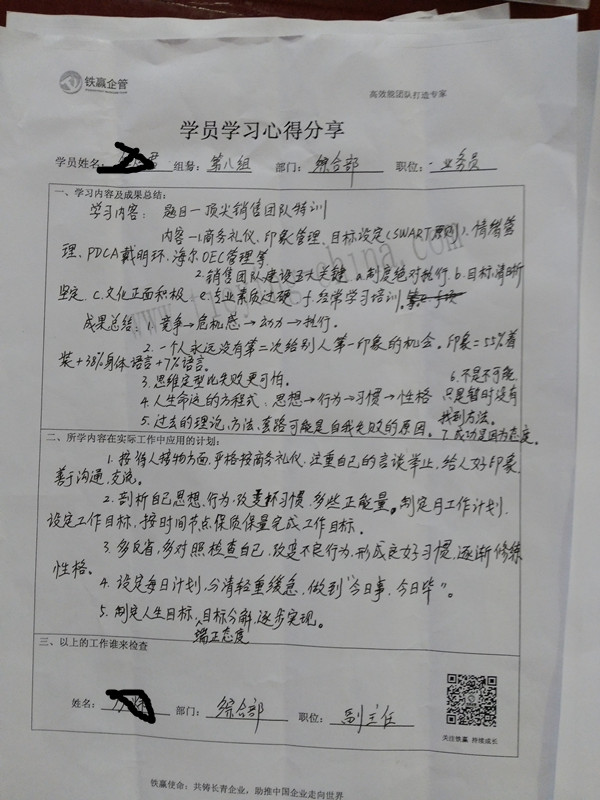 铁赢企管
高效能团队打造专家
学员学习心得分享
学员姓名: 君 组别: 第八组 部门: 综合部 职位: 业务员
一、学习内容及成果总结:
学习内容: 题目—顶尖销售团队特训
内容—1.商务礼仪、印象管理、目标设定(SWART原则)、情绪管
理、PDCA戴明环、海尔OEC管理等
2.销售团队建设五大关键 a.制度绝对执行 b.目标清晰
坚定 c.文化正面积极 e.专业素质过硬 f.经常学习培训。
成果总结: 1.竞争→危机感→动力→执行。
2.一个人永远没有第二次给别人第一印象的机会。印象=55%着
装+38%身体语言+7%语言。
3.思维定型比失败更可怕。
4.人生命运的方程式、思想→行为→习惯→性格
5.过去的理论、方法、套路可能是自我失败的原因。
6.不是不可能,
只是暂时没有
找到方法。
7.成功是因为态度。
二、所学内容在实际工作中应用的计划:
1.接待人接物方面,严格按商务礼仪,注重自己的言谈举止,给人好印象,
善于沟通,交流。
2.剖析自己思想、行为,改变坏习惯,多些正能量。制定月工作计划,
设定工作目标,按时间节点保质保量完成工作目标。
3.多反省,多对照检查自己,改变不良行为,形成良好习惯,逐渐修炼
性格。
4.设定每日计划,分清轻重缓急,做到“今日事,今日毕”。
5.制定人生目标,目标分解,逐步实现。
端正态度
三、以上的工作谁来检查
姓名: 部门: 综合部 职位: 副主任
关注铁赢 持续成长
铁赢使命:共铸长青企业,助推中国企业走向世界